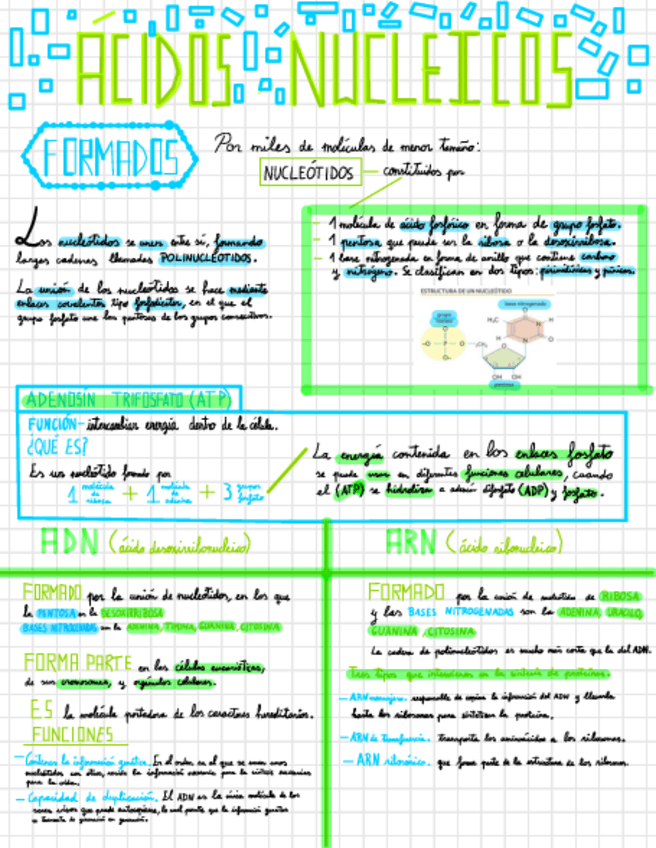 ÁCIDOS NUCLEICOS
FORMADOS
Por miles de moléculas de menor tamaño:
NUCLEÓTIDOS — constituidos por
- 1 molécula de ácido fosfórico en forma de grupo fosfato.
- 1 pentosa que puede ser la ribosa o la desoxirribosa.
- 1 base nitrogenada en forma de anillo que contiene carbono
y nitrógeno. Se clasifican en dos tipos: pirimidínicas y púricas.
Los nucleótidos se unen entre sí, formando
largas cadenas llamadas POLINUCLEÓTIDOS.
La unión de los nucleótidos se hace mediante
enlaces covalentes tipo fosfodiéster, en el que el
grupo fosfato une las pentosas de los grupos consecutivos.
ESTRUCTURA DE UN NUCLEÓTIDO
base nitrogenada
grupo fosfato
pentosa
ADENOSÍN TRIFOSFATO (ATP)
FUNCIÓN - intercambiar energía dentro de la célula.
¿QUÉ ES?
Es un nucleótido formado por
1 molécula de ribosa + 1 molécula de adenina + 3 grupos fosfato
La energía contenida en los enlaces fosfato
se puede usar en diferentes funciones celulares, cuando
el (ATP) se hidroliza a adosín difosfato (ADP) y fosfato.
ADN (ácido desoxirribonucleico)
FORMADO por la unión de nucleótidos, en los que
la PENTOSA es la DESOXIRRIBOSA
BASES NITROGENADAS son la ADENINA, TIMINA, GUANINA, CITOSINA
FORMA PARTE en las células eucarióticas,
de sus cromosomas, y orgánulos celulares.
ES la molécula portadora de los caracteres hereditarios.
FUNCIONES
- Contiene la información genética. En el orden en el que se unen unos
nucleótidos con otros, reside la información necesaria para la síntesis
para la vida.
- Capacidad de duplicación. El ADN es la única molécula de los
seres vivos que puede autocopiarse, lo cual permite que la información genética
se transmita de generación en generación.
ARN (ácido ribonucleico)
FORMADO por la unión de nucleótidos de RIBOSA
y las BASES NITROGENADAS son la ADENINA, URACILO,
GUANINA, CITOSINA
La cadena de polinucleótidos es mucho más corta que la del ADN.
Tres tipos que intervienen en la síntesis de proteínas.
- ARN mensajero. responsable de copiar la información del ADN y llevarla
hasta los ribosomas para sintetizar la proteína.
- ARN de transferencia. transporta los aminoácidos a los ribosomas.
- ARN ribosómico. que forma parte de la estructura de los ribosomas.